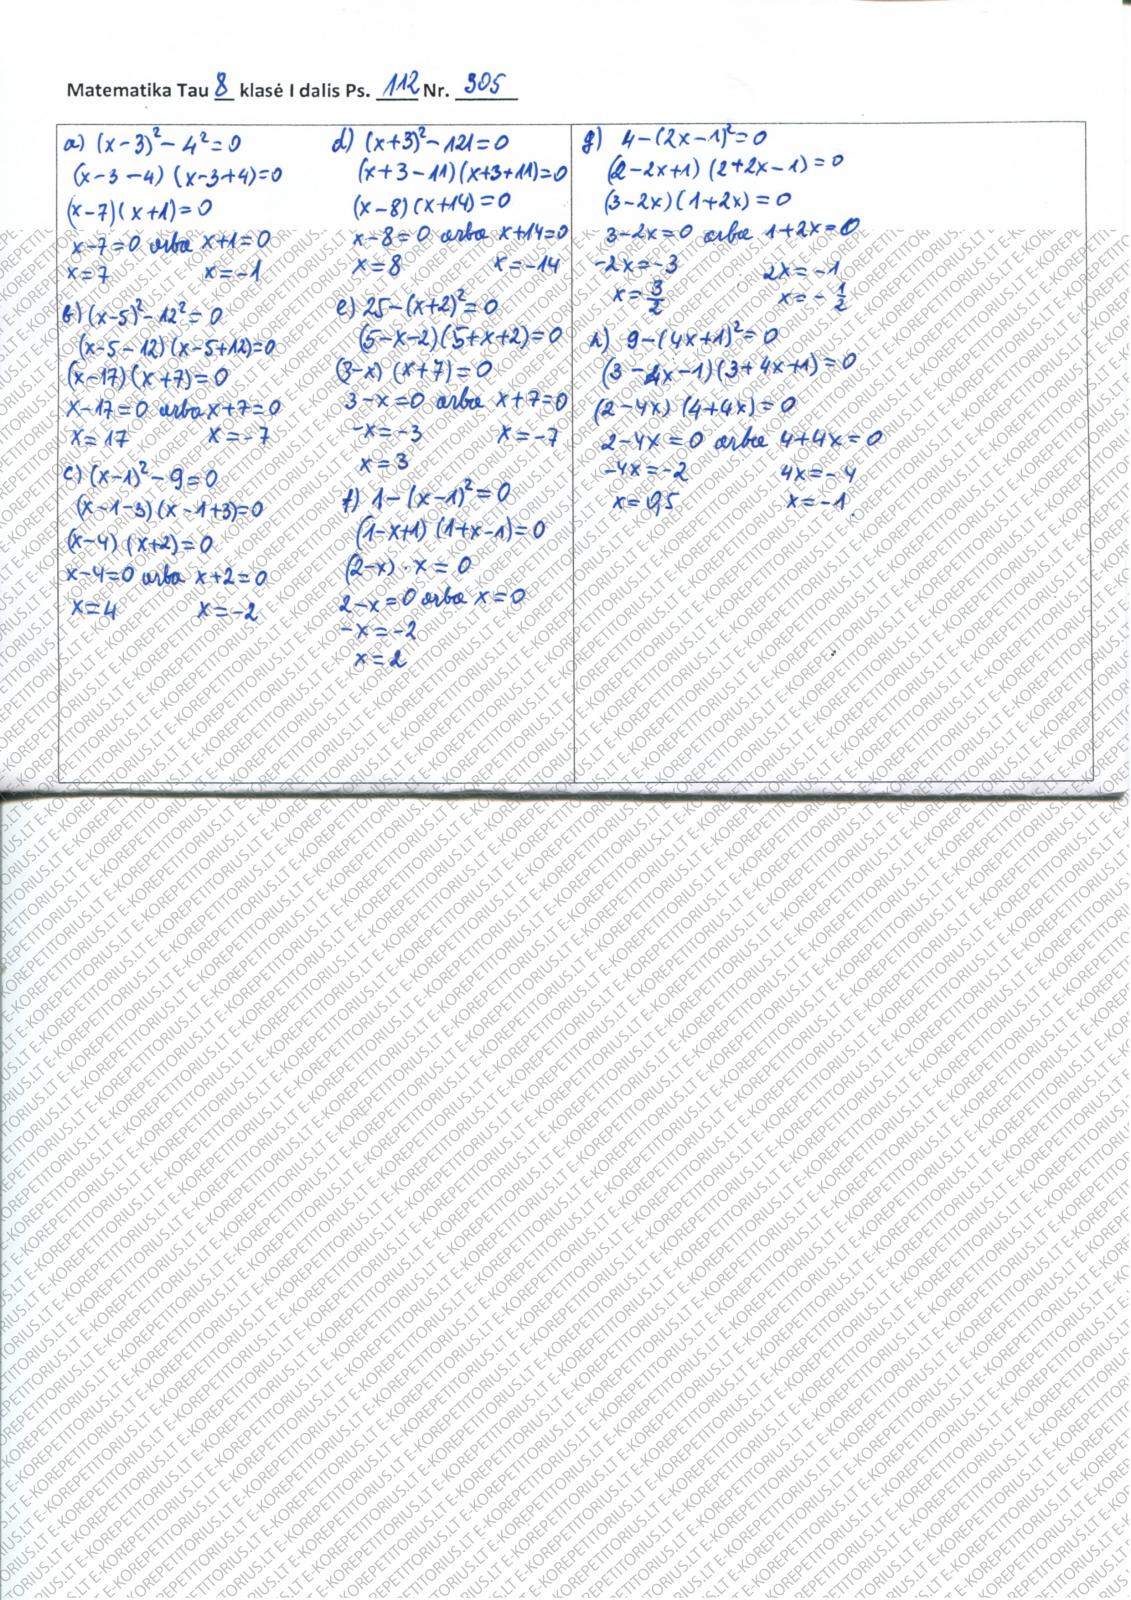 Matematika Tau 8 klasė I dalis Ps. 112 Nr. 305
a) (x-3)²-4²=0
(x-3-4)(x-3+4)=0
(x-7)(x+1)=0
x-7=0 arba x+1=0
x=7 x=-1
b) (x-5)²-12²=0
(x-5-12)(x-5+12)=0
(x-17)(x+7)=0
x-17=0 arba x+7=0
x=17 x=-7
c) (x-1)²-9=0
(x-1-3)(x-1+3)=0
(x-4)(x+2)=0
x-4=0 arba x+2=0
x=4 x=-2
d) (x+3)²-121=0
(x+3-11)(x+3+11)=0
(x-8)(x+14)=0
x-8=0 arba x+14=0
x=8 x=-14
e) 25-(x+2)²=0
(5-x-2)(5+x+2)=0
(3-x)(x+7)=0
3-x=0 arba x+7=0
-x=-3 x=-7
x=3
f) 1-(x-1)²=0
(1-x+1)(1+x-1)=0
(2-x)·x=0
2-x=0 arba x=0
-x=-2
x=2
g) 4-(2x-1)²=0
(2-2x+1)(2+2x-1)=0
(3-2x)(1+2x)=0
3-2x=0 arba 1+2x=0
-2x=-3 2x=-1
x=3/2 x=-1/2
h) 9-(4x+1)²=0
(3-4x-1)(3+4x+1)=0
(2-4x)(4+4x)=0
2-4x=0 arba 4+4x=0
-4x=-2 4x=-4
x=0,5 x=-1.
E-KOREPETITORIUS.LT